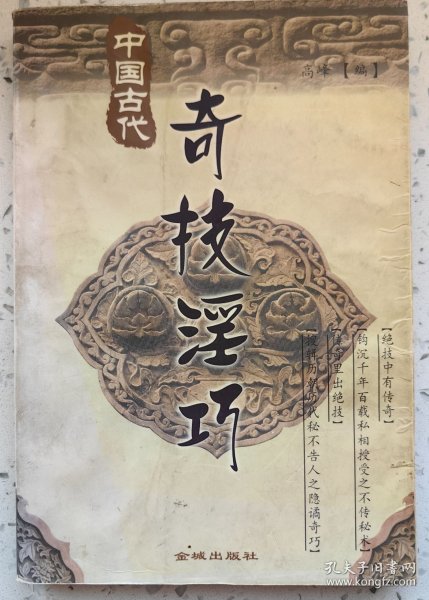 中国古代
奇技淫巧
高峰【编】
【绝技中有传奇】
【钩沉千年百载私相授受之不传秘术】
【传奇里出绝技】
【搜辑历朝历代秘不告人之隐谲奇巧】
金城出版社
孔夫子旧书网
www.kongfz.com